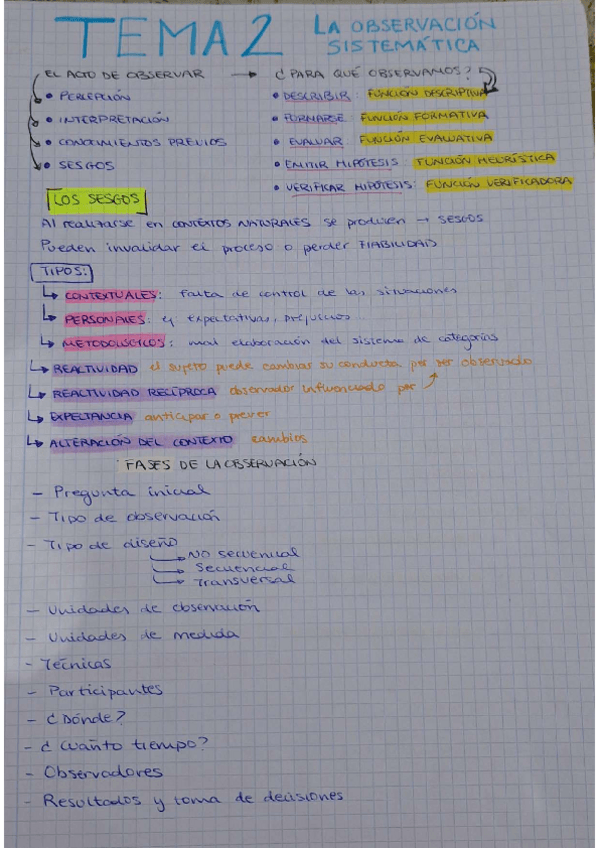 TEMA 2 LA OBSERVACIÓN
SISTEMÁTICA
EL ACTO DE OBSERVAR → ¿PARA QUÉ OBSERVAMOS?
• PERCEPCIÓN
• INTERPRETACIÓN
• CONOCIMIENTOS PREVIOS
• SESGOS
• DESCRIBIR: FUNCIÓN DESCRIPTIVA
• FORMARSE: FUNCIÓN FORMATIVA
• EVALUAR: FUNCIÓN EVALUATIVA
• EMITIR HIPÓTESIS: FUNCIÓN HEURÍSTICA
• VERIFICAR HIPÓTESIS: FUNCIÓN VERIFICADORA
LOS SESGOS
Al realizarse en CONTEXTOS NATURALES se producen → SESGOS
Pueden invalidar el proceso o perder FIABILIDAD
TIPOS:
↳ CONTEXTUALES: falta de control de las situaciones
↳ PERSONALES: ej expectativas, prejuicios
↳ METODOLÓGICOS: mal elaboración del sistema de categorías
↳ REACTIVIDAD el sujeto puede cambiar su conducta por ser observado
↳ REACTIVIDAD RECÍPROCA observador influenciado por ↗
↳ EXPECTANCIA anticipar o prever
↳ ALTERACIÓN DEL CONTEXTO cambios
FASES DE LA OBSERVACIÓN
- Pregunta inicial
- Tipo de observación
- Tipo de diseño
→ No secuencial
→ Secuencial
→ Transversal
- Unidades de observación
- Unidades de medida
- Técnicas
- Participantes
- ¿Dónde?
- ¿Cuánto tiempo?
- Observadores
- Resultados y toma de decisiones